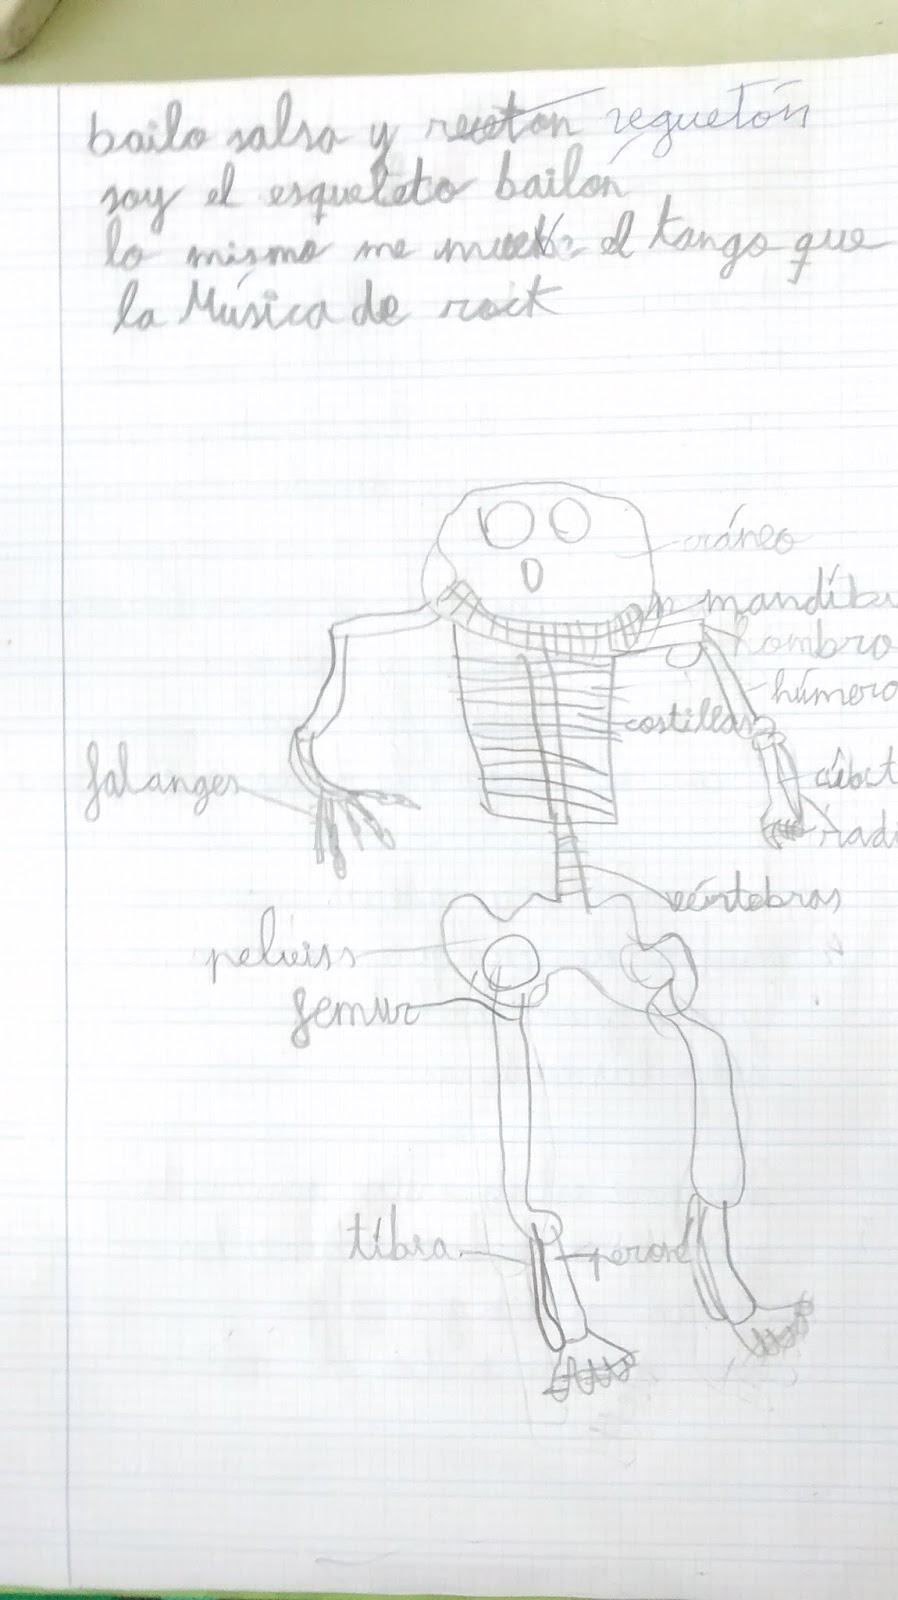 bailo salsa y reguetón
soy el esqueleto bailón
lo mismo me el tango que
la Música de rock
cráneo
mandíbu
hombro
húmero
costillas
falanges
cúbct
radi
vértebras
pelviss
femur
tíbia
peroné